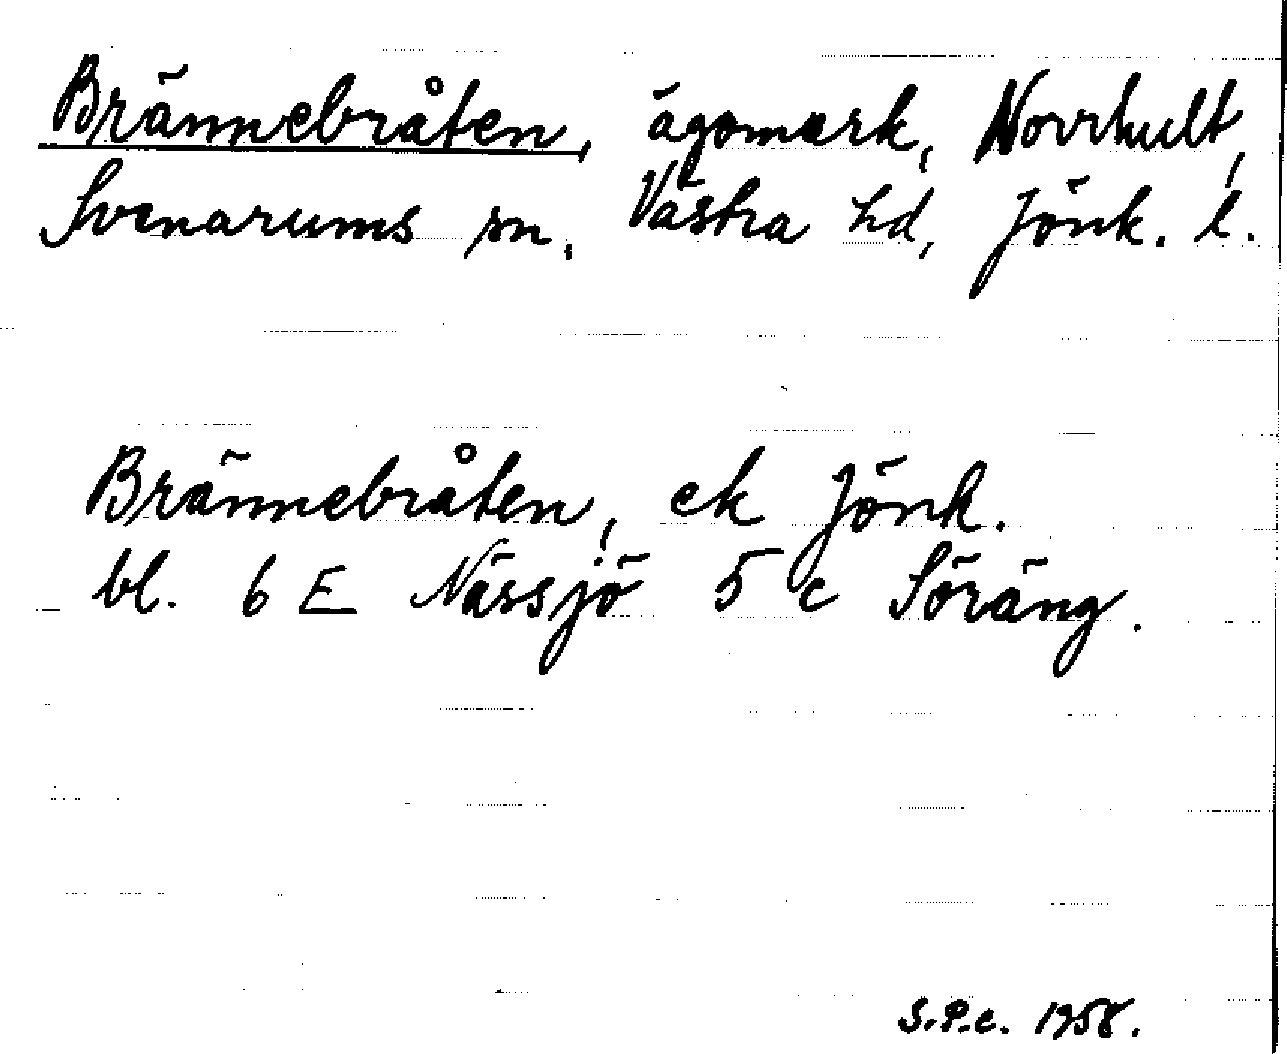 Brännebråten, ägomark, Norrhult,
Svenarums sn, Västra hd, Jönk. l.
Brännebråten, ek Jönk.
bl. 6 E Nässjö 5 c Söräng.
S.P.c. 1958.